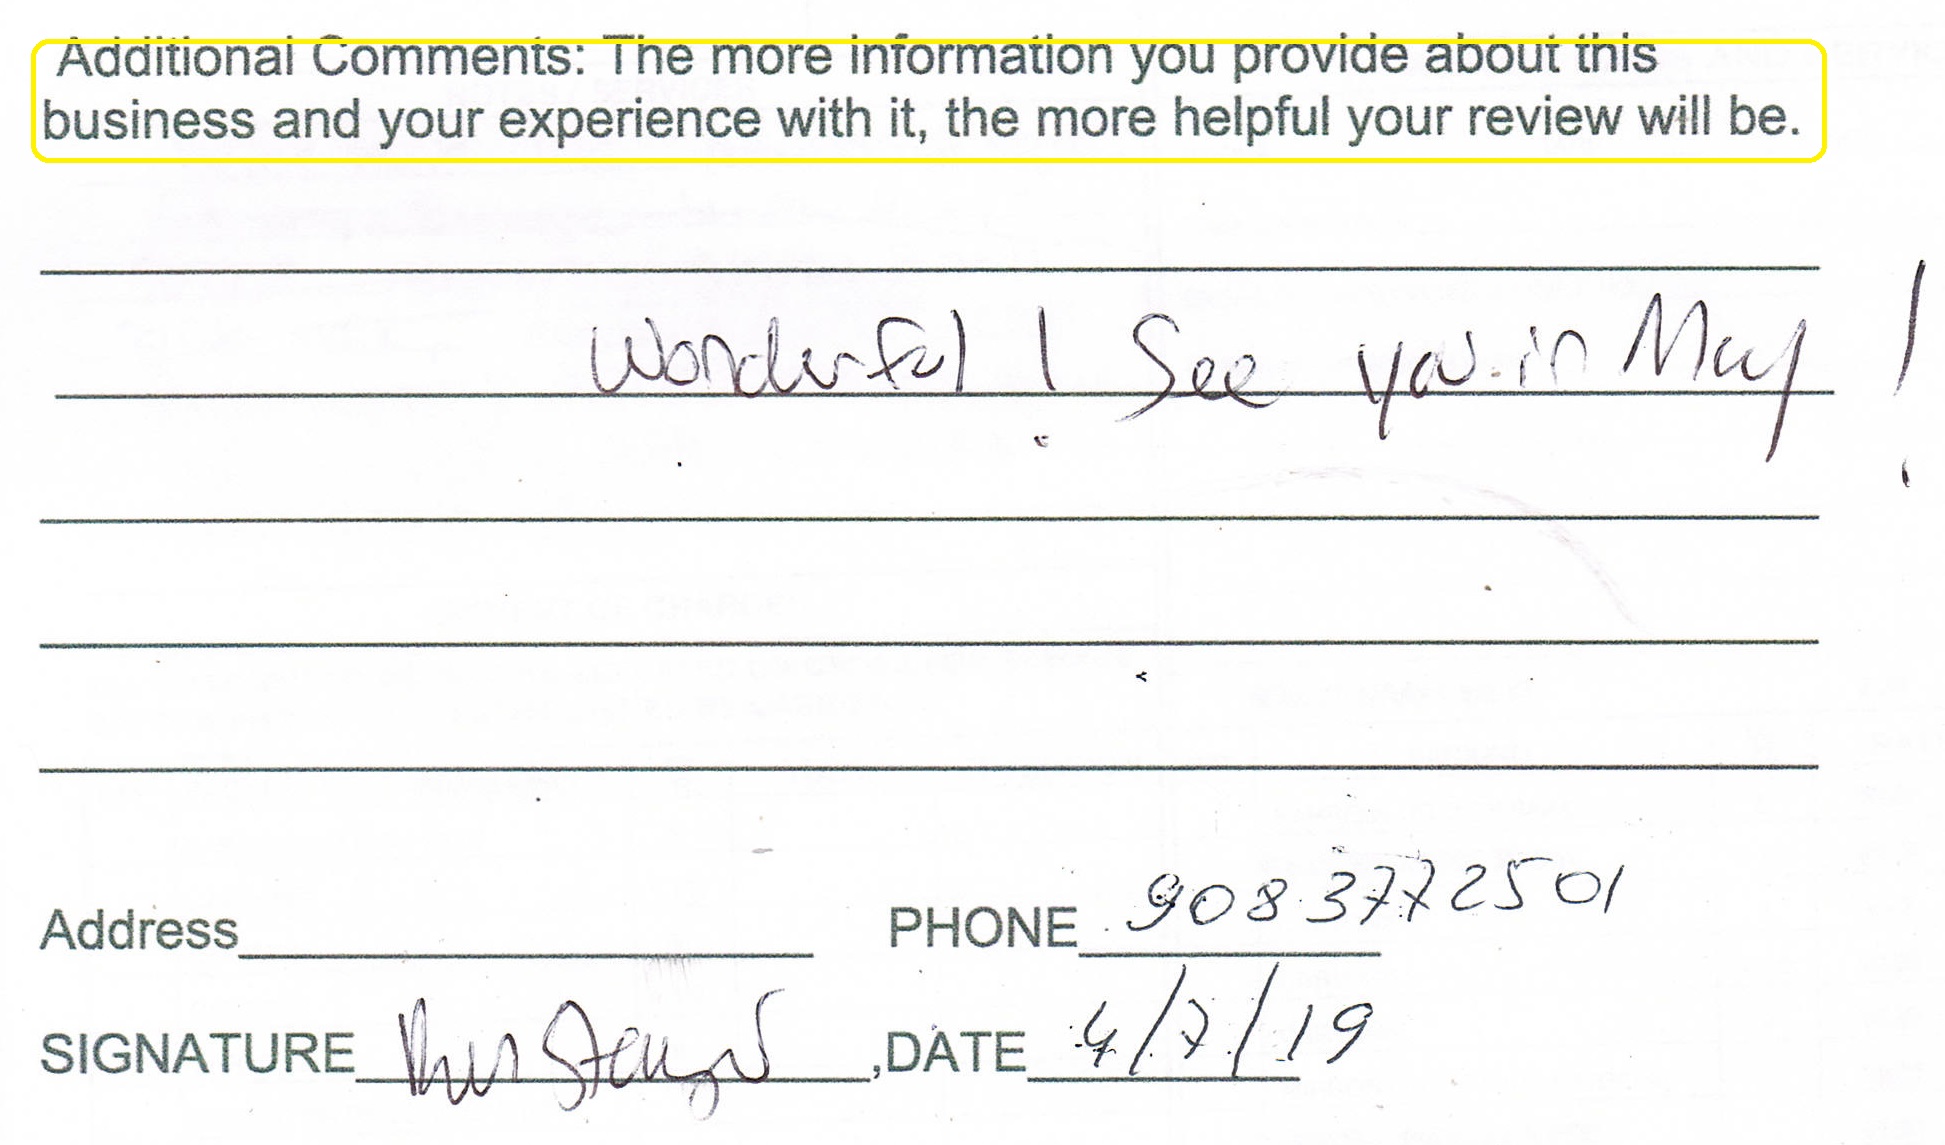 Additional Comments: The more information you provide about this
business and your experience with it, the more helpful your review will be.
Wonderful! See you in May!
Address PHONE 9083772501
SIGNATURE ,DATE 4/7/19